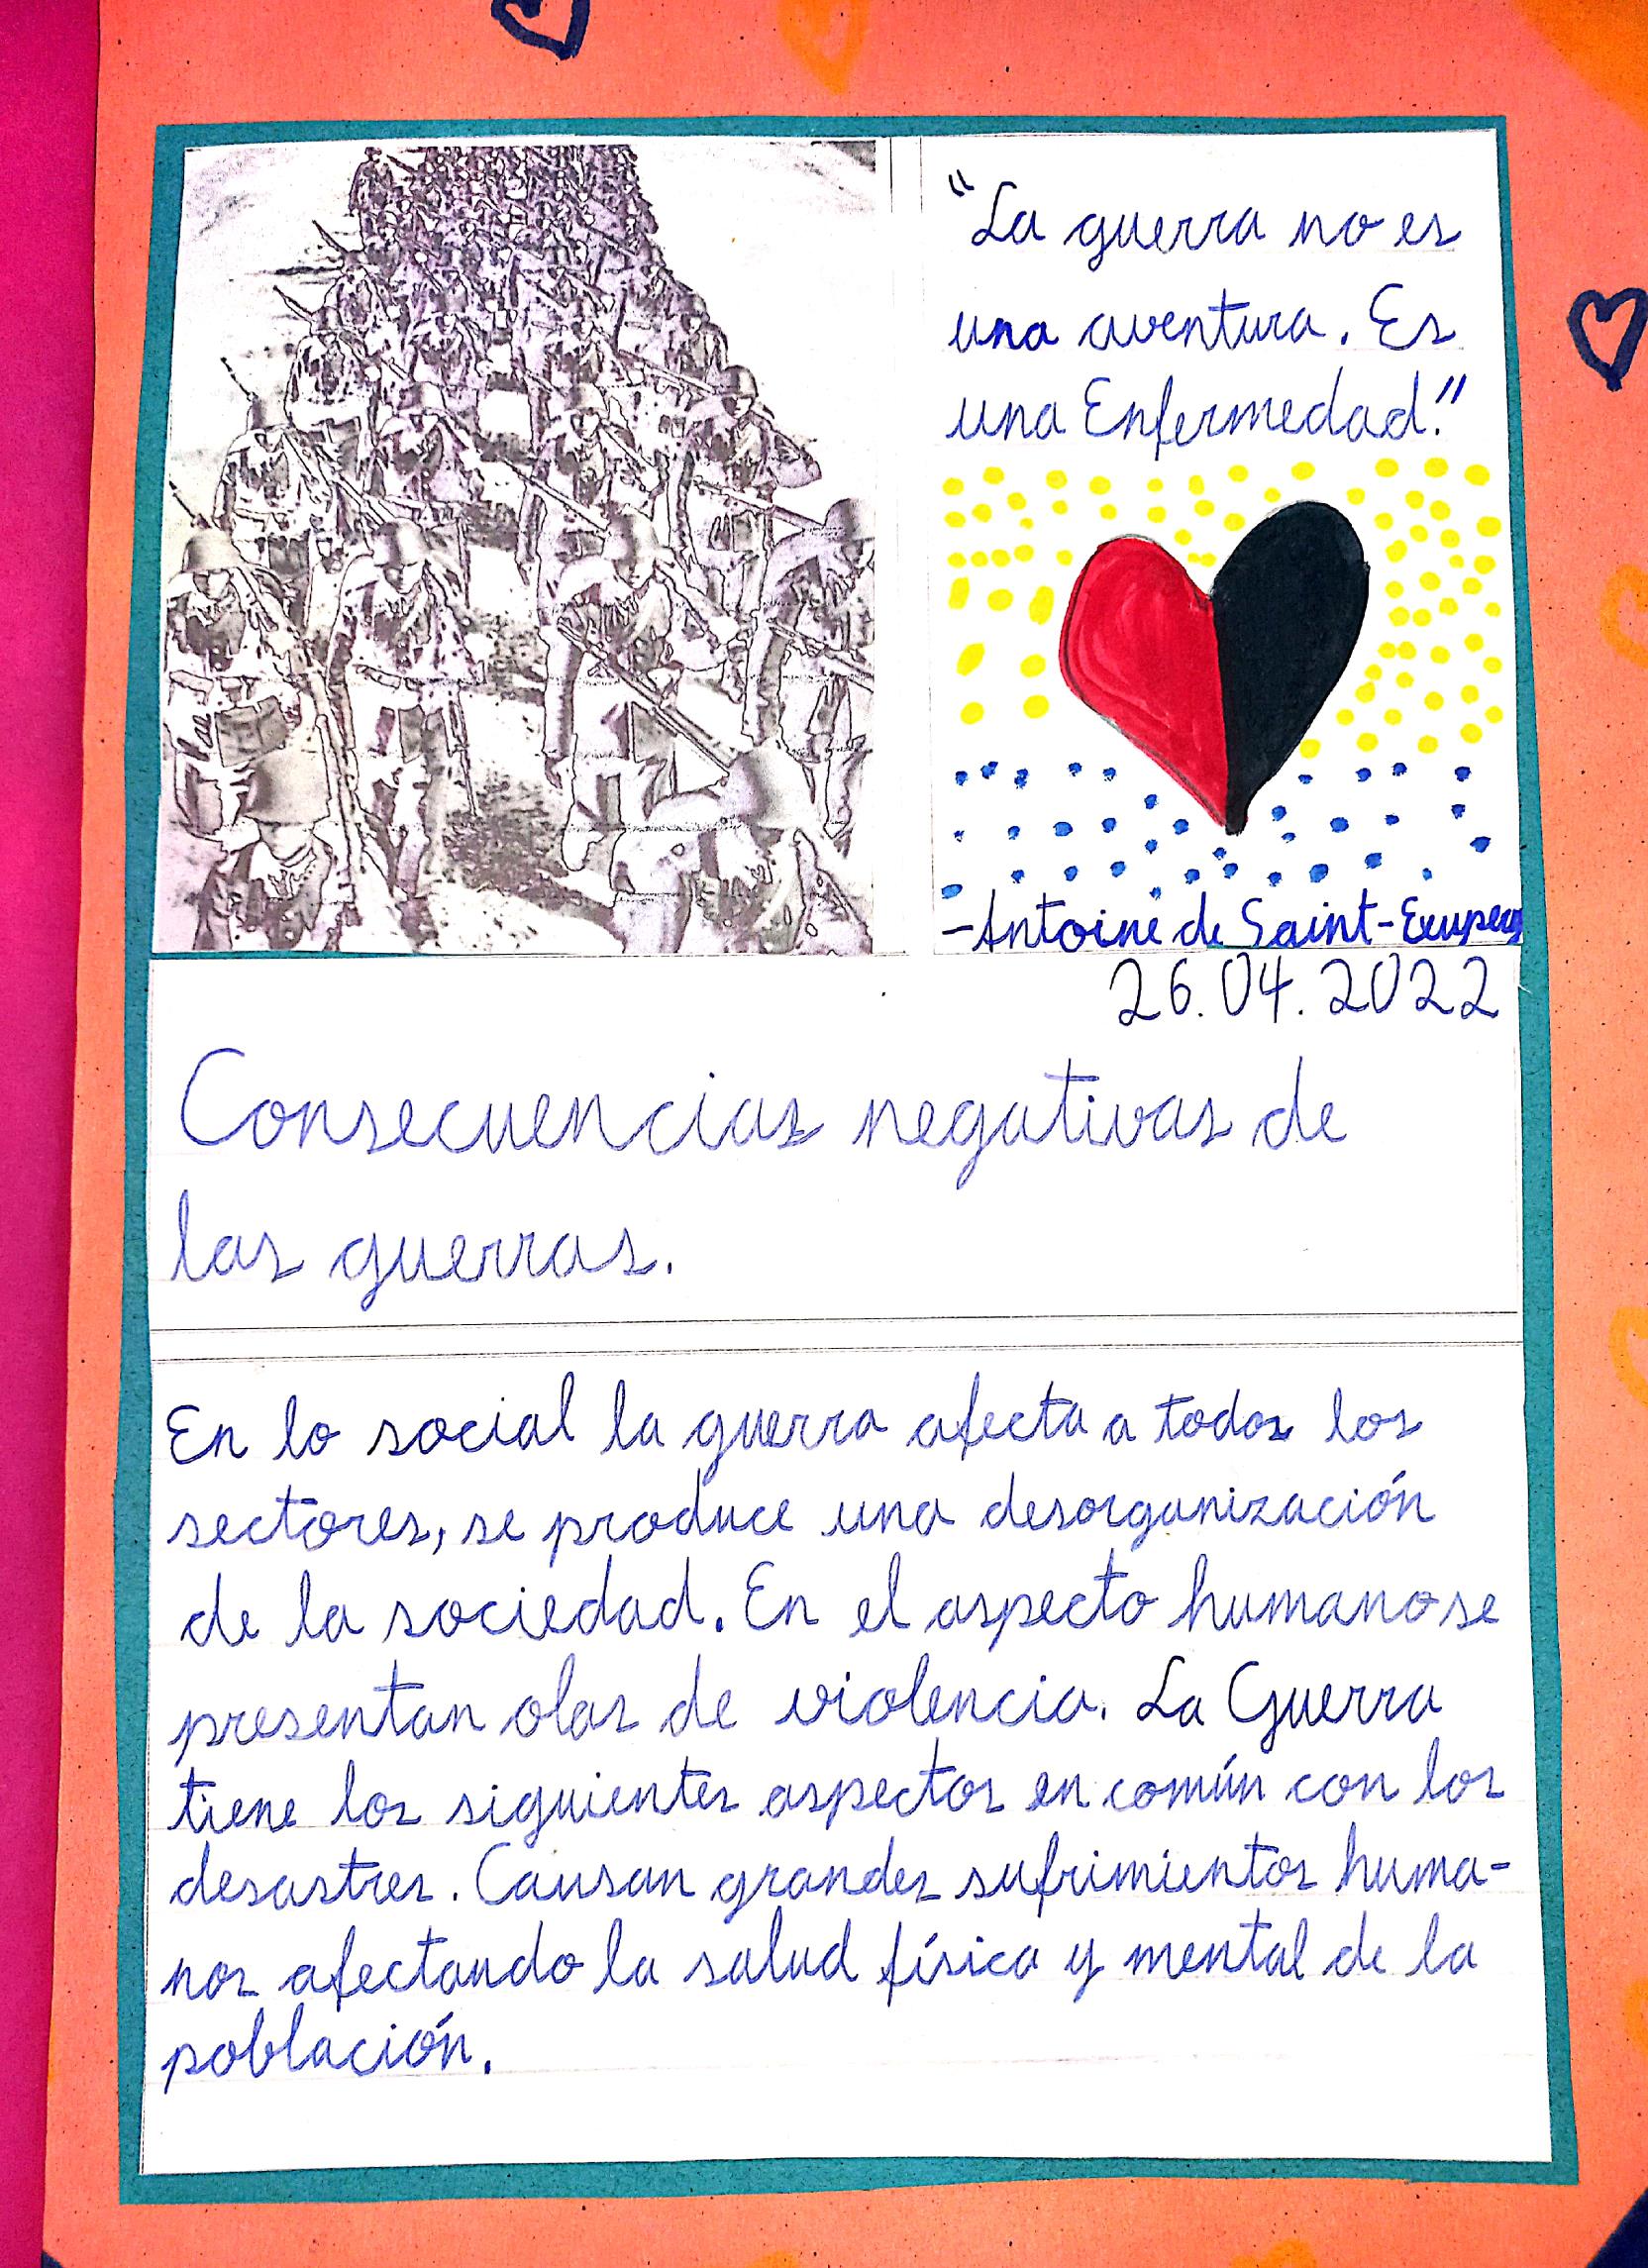 "La guerra no es
una aventura. Es
una Enfermedad."
-Antoine de Saint-Exupery
26.04.2022
Consecuencias negativas de
las guerras.
En lo social la guerra afecta a todos los
sectores, se produce una desorganización
de la sociedad. En el aspecto humano se
presentan olas de violencia. La Guerra
tiene los siguientes aspectos en común con los
desastres. Causan grandes sufrimientos huma-
nos afectando la salud física y mental de la
población.